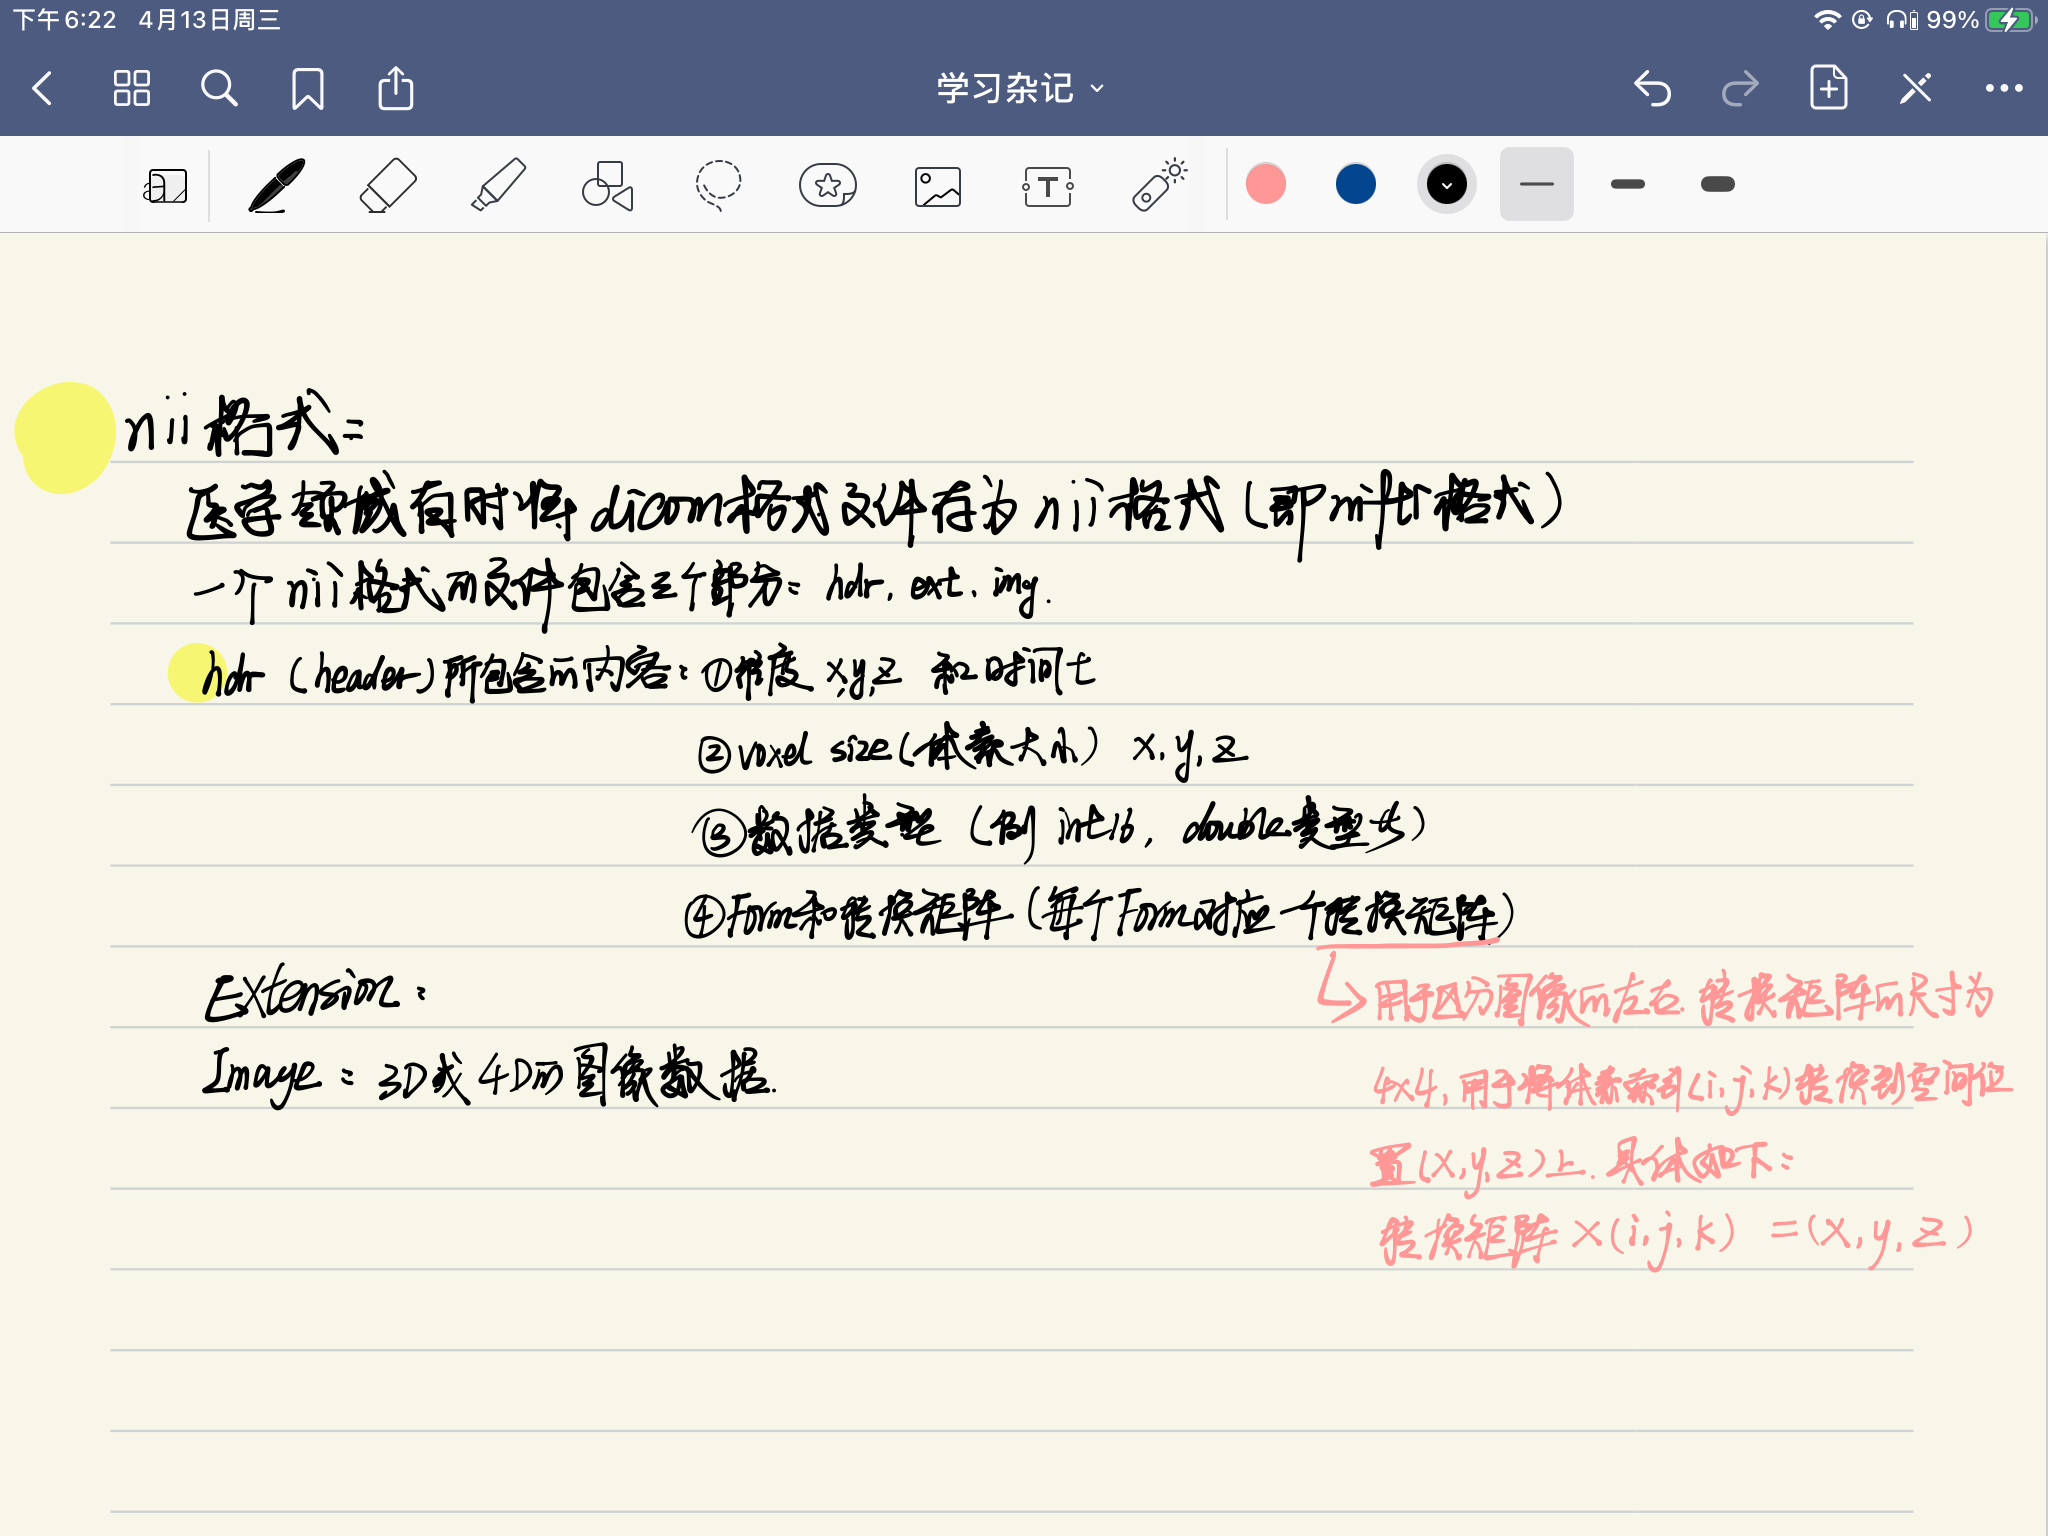 下午6:22 4月13日周三 99%
学习杂记
nii格式:
医学领域有时将dicom格式文件存为nii格式(即nifti格式)
一个nii格式的文件包含三个部分: hdr, ext, img.
hdr (header)所包含的内容: ①维度 x,y,z 和时间t
②voxel size(体素大小) x,y,z
③数据类型 (例 int16, double类型等)
④Form和转换矩阵 (每个Form对应一个转换矩阵)
Extension:
用于区分图像的左右. 转换矩阵的尺寸为
Image: 3D或4D的图像数据.
4x4, 用于将体素索引(i,j,k)转换到空间位
置(x,y,z)上. 具体如下:
转换矩阵 ×(i,j,k) =(x,y,z)